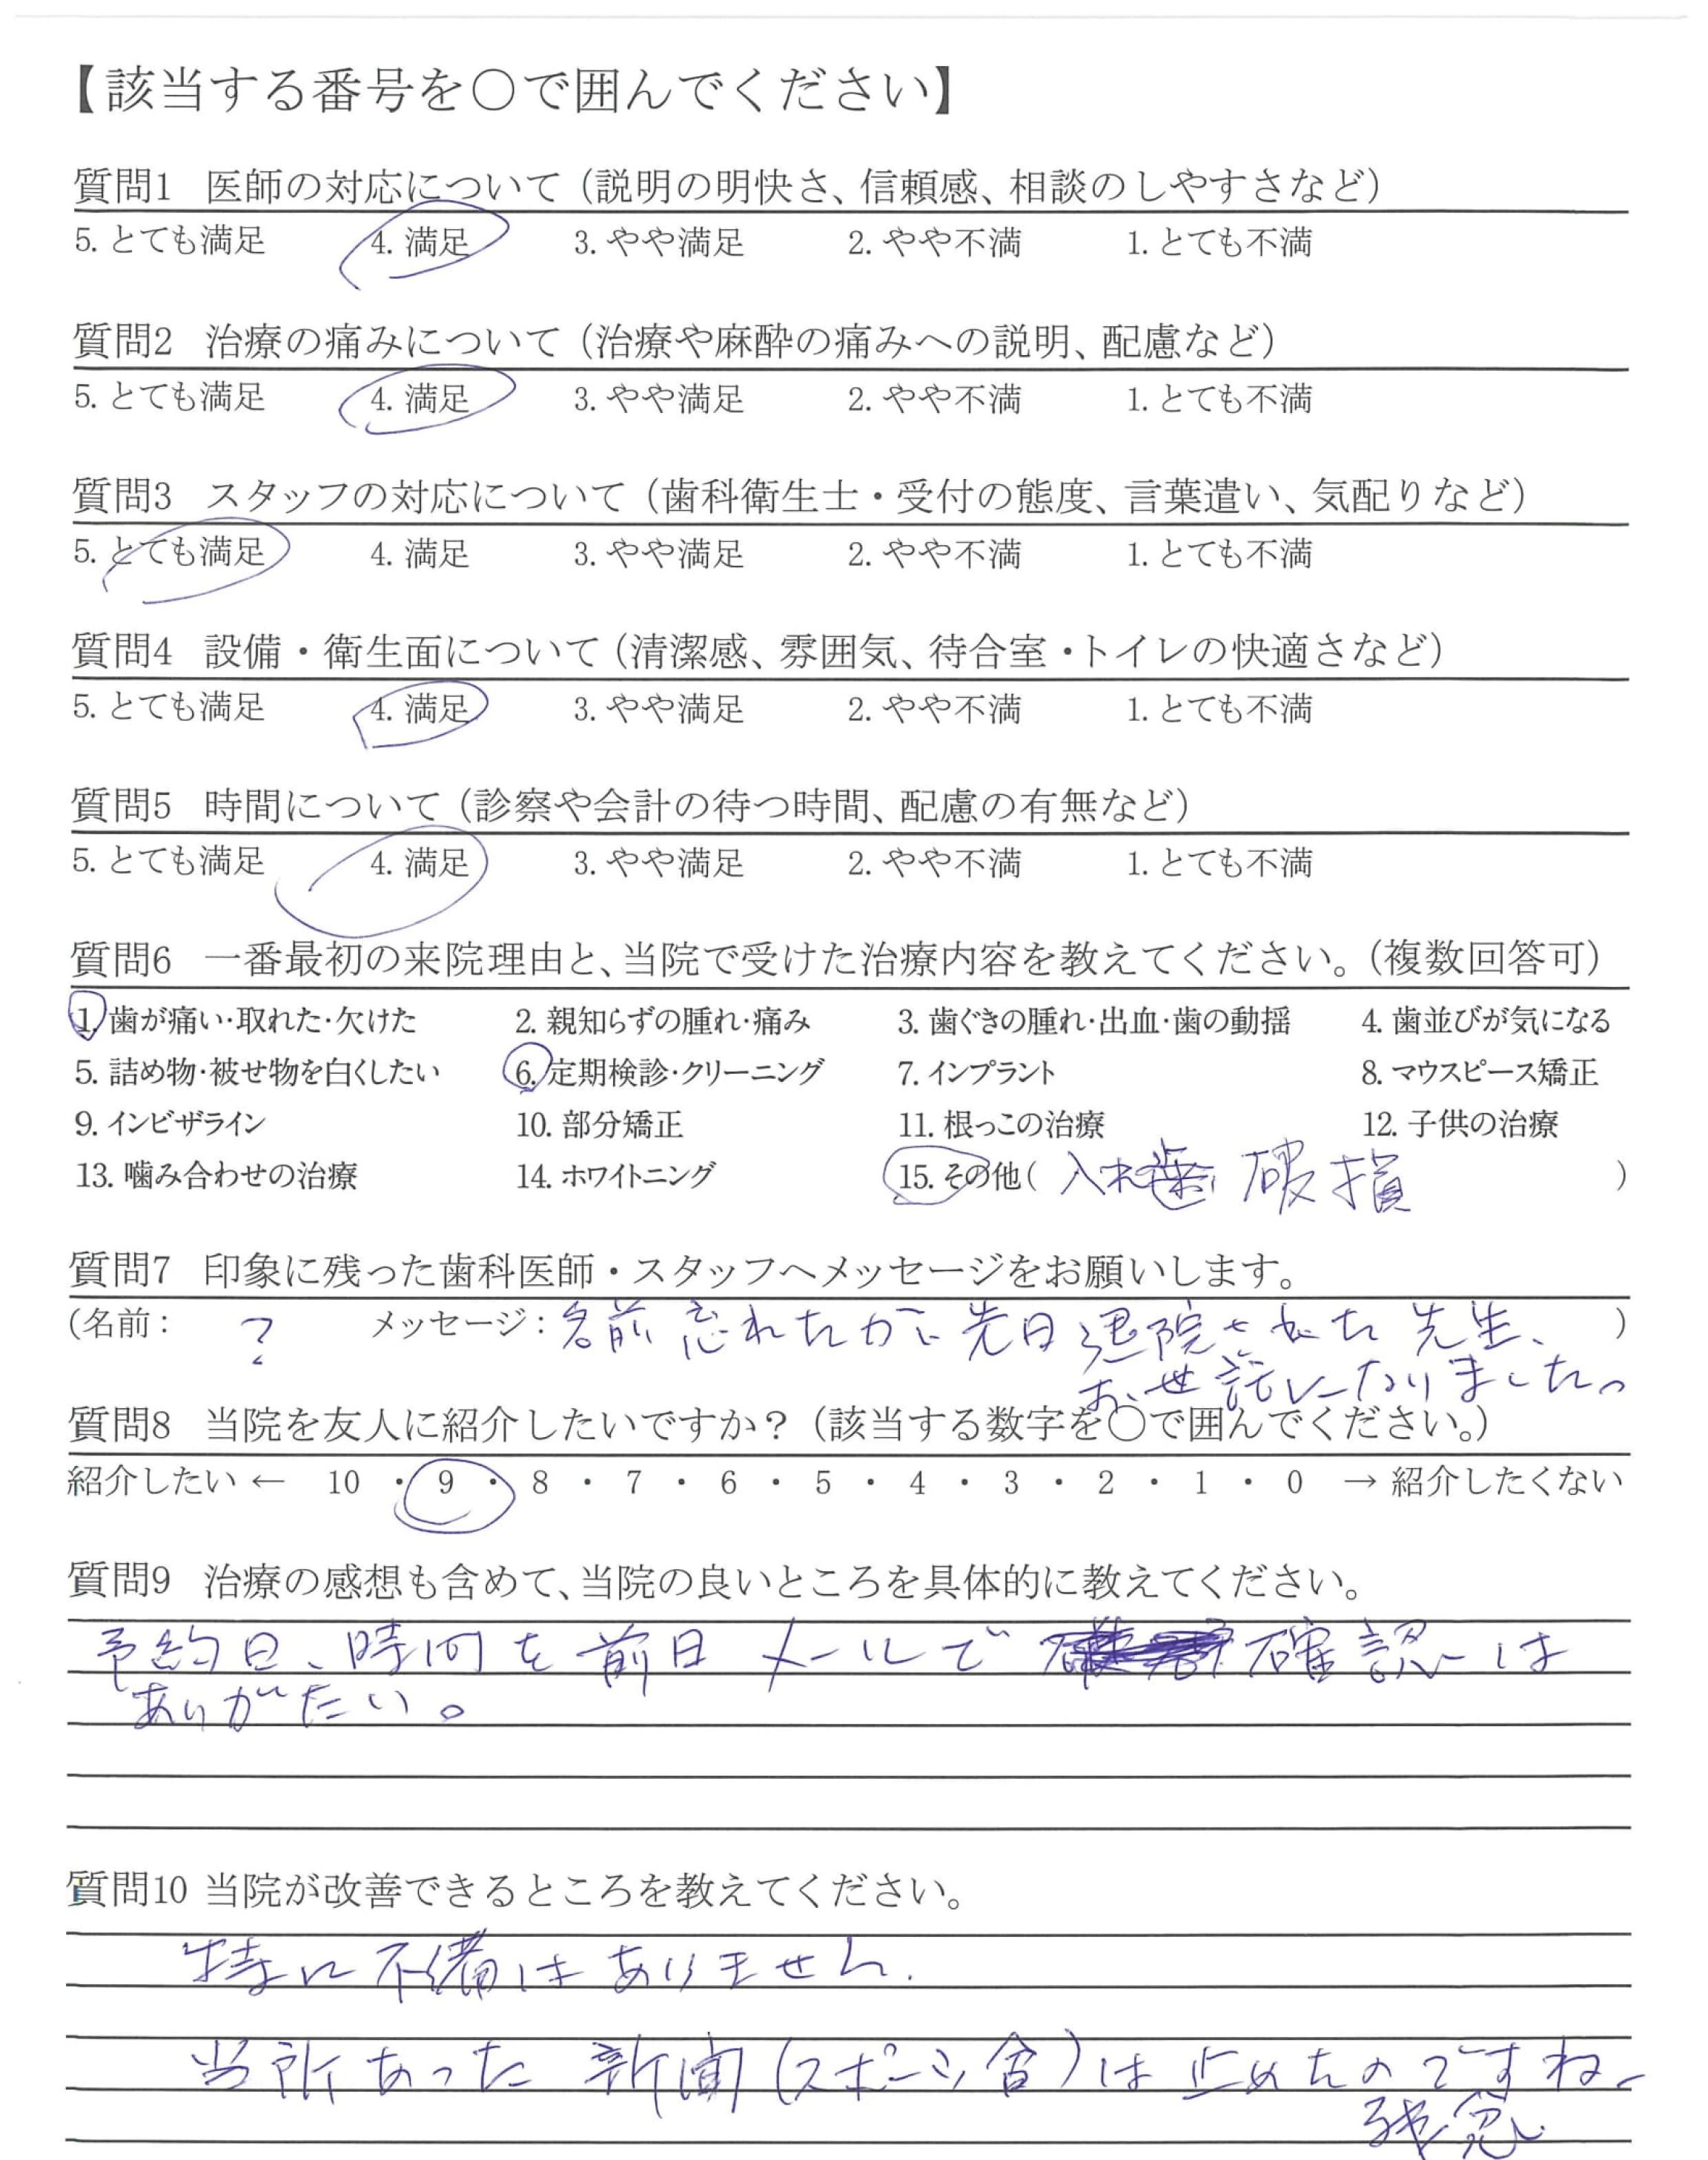 【該当する番号を○で囲んでください】
質問1 医師の対応について（説明の明快さ、信頼感、相談のしやすさなど）
5. とても満足 4. 満足 3. やや満足 2. やや不満 1. とても不満
質問2 治療の痛みについて（治療や麻酔の痛みへの説明、配慮など）
5. とても満足 4. 満足 3. やや満足 2. やや不満 1. とても不満
質問3 スタッフの対応について（歯科衛生士・受付の態度、言葉遣い、気配りなど）
5. とても満足 4. 満足 3. やや満足 2. やや不満 1. とても不満
質問4 設備・衛生面について（清潔感、雰囲気、待合室・トイレの快適さなど）
5. とても満足 4. 満足 3. やや満足 2. やや不満 1. とても不満
質問5 時間について（診察や会計の待つ時間、配慮の有無など）
5. とても満足 4. 満足 3. やや満足 2. やや不満 1. とても不満
質問6 一番最初の来院理由と、当院で受けた治療内容を教えてください。（複数回答可）
1. 歯が痛い・取れた・欠けた 2. 親知らずの腫れ・痛み 3. 歯ぐきの腫れ・出血・歯の動揺 4. 歯並びが気になる
5. 詰め物・被せ物を白くしたい 6. 定期検診・クリーニング 7. インプラント 8. マウスピース矯正
9. インビザライン 10. 部分矯正 11. 根っこの治療 12. 子供の治療
13. 噛み合わせの治療 14. ホワイトニング 15. その他( 入れ歯 破損 )
質問7 印象に残った歯科医師・スタッフへメッセージをお願いします。
(名前： ? メッセージ：名前忘れたが、先日退院された先生、 )
お世話になりました。
質問8 当院を友人に紹介したいですか？（該当する数字を○で囲んでください。）
紹介したい ← 10 ・ 9 ・ 8 ・ 7 ・ 6 ・ 5 ・ 4 ・ 3 ・ 2 ・ 1 ・ 0 → 紹介したくない
質問9 治療の感想も含めて、当院の良いところを具体的に教えてください。
予約日、時間を前日メールで 確認は
ありがたい。
質問10 当院が改善できるところを教えてください。
特に不備はありません.
当所あった新聞(スポーツ含)は止めたのですね
残念